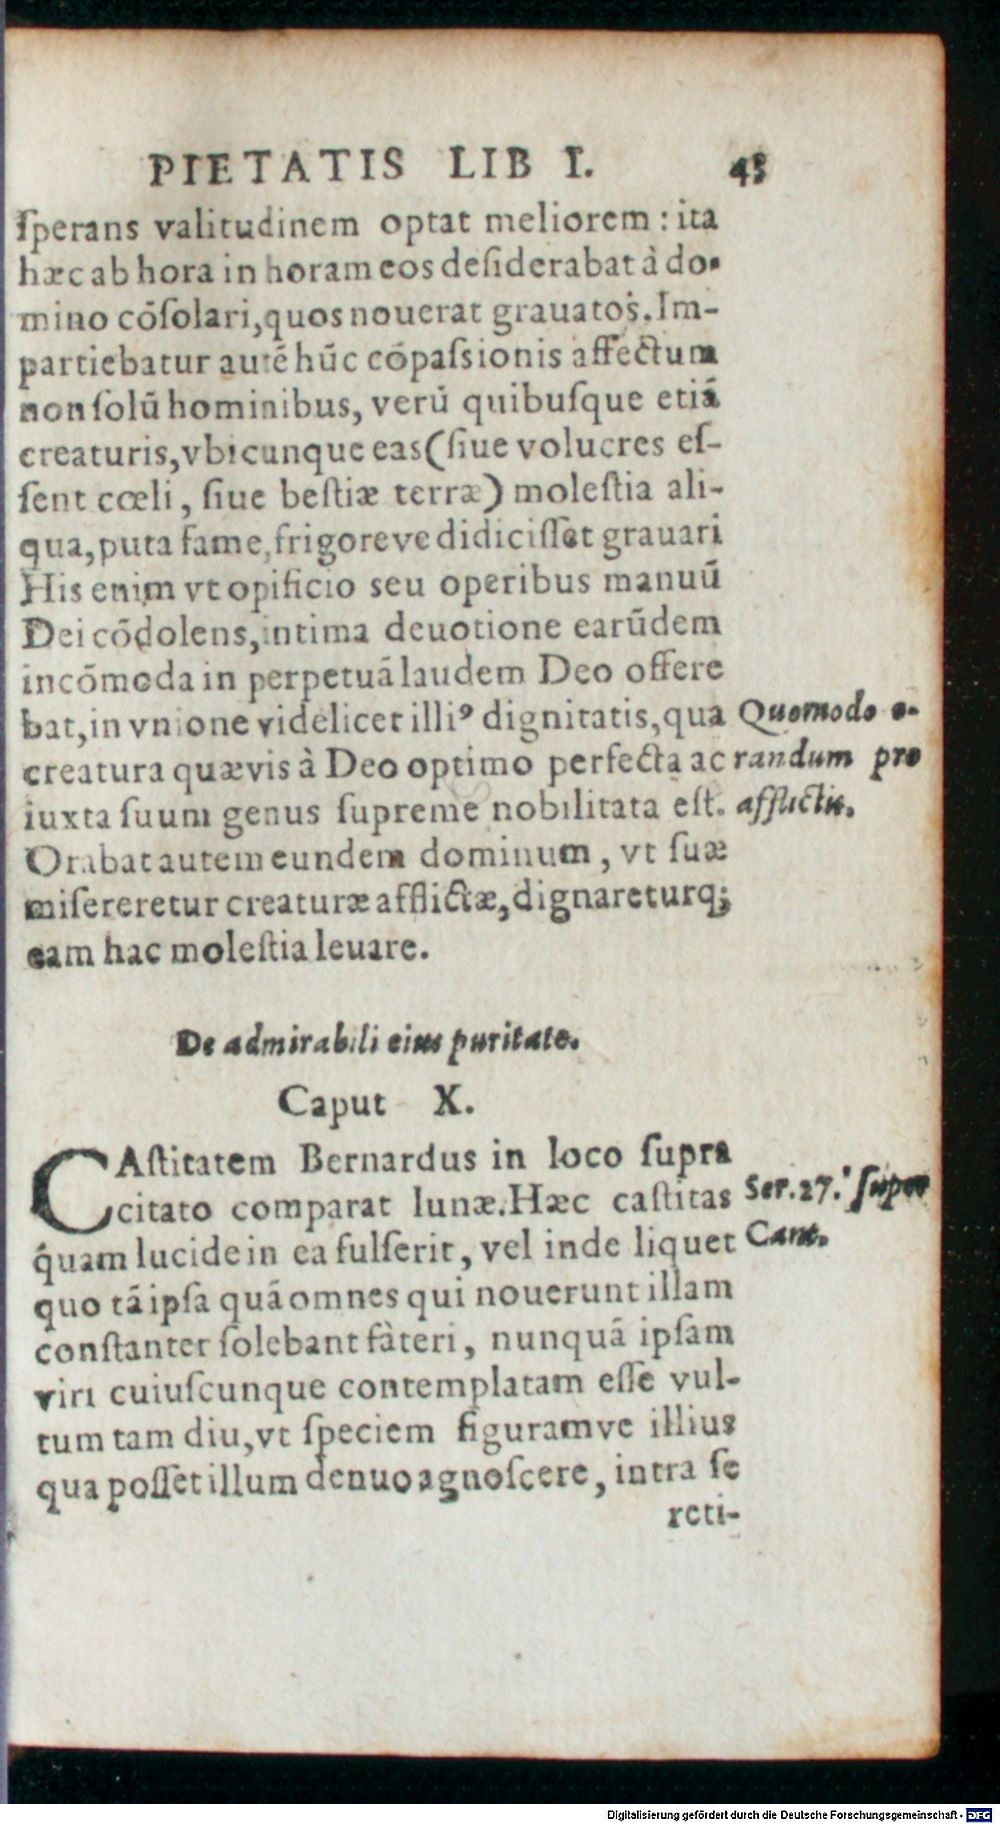 PIETATIS LIB I. 45
ſperans valitudinem optat meliorem : ita
hæc ab hora in horam eos deſiderabat à do-
mino cõſolari, quos nouerat grauatos. Im-
partiebatur autẽ hũc cõpaſsionis affectum
non ſolũ hominibus, verũ quibuſque etiã
creaturis, vbicunque eas (ſiue volucres eſ-
ſent cœli, ſiue beſtiæ terræ) moleſtia ali-
qua, puta fame, frigoreve didiciſſet grauari
His enim vt opificio seu operibus manuũ
Dei cõdolens, intima deuotione earũdem
incõmoda in perpetuã laudem Deo offere
bat, in vnione videlicet illiꝰ dignitatis, qua
Quomodo o-
creatura quævis à Deo optimo perfecta ac
randum pro
iuxta ſuum genus ſupreme nobilitata eſt.
afflictis.
Orabat autem eundem dominum, vt ſuæ
miſereretur creaturæ afflictæ, dignareturq;
eam hac moleſtia leuare.
De admirabili eius puritate.
Caput X.
CAſtitatem Bernardus in loco ſupra
citato comparat lunæ. Hæc caſtitas
Ser. 27. ſuper
quam lucide in ea fulſerit, vel inde liquet
Cant.
quo tã ipſa quã omnes qui nouerunt illam
conſtanter ſolebant fàteri, nunquã ipſam
viri cuiuſcunque contemplatam eſſe vul-
tum tam diu, vt ſpeciem figuramve illius
qua poſſet illum denuo agnoſcere, intra ſe
reti-
Digitalisierung gefördert durch die Deutsche Forschungsgemeinschaft - DFG